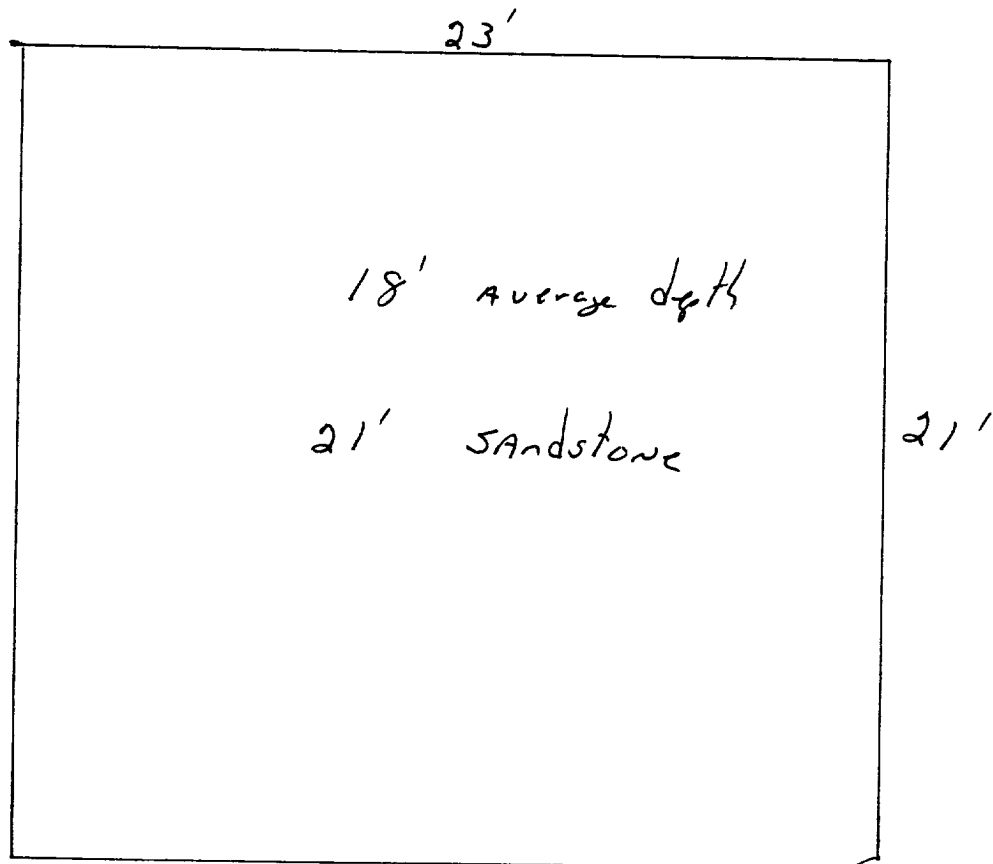 23'
18' Average depth
21' SAndstone
21'